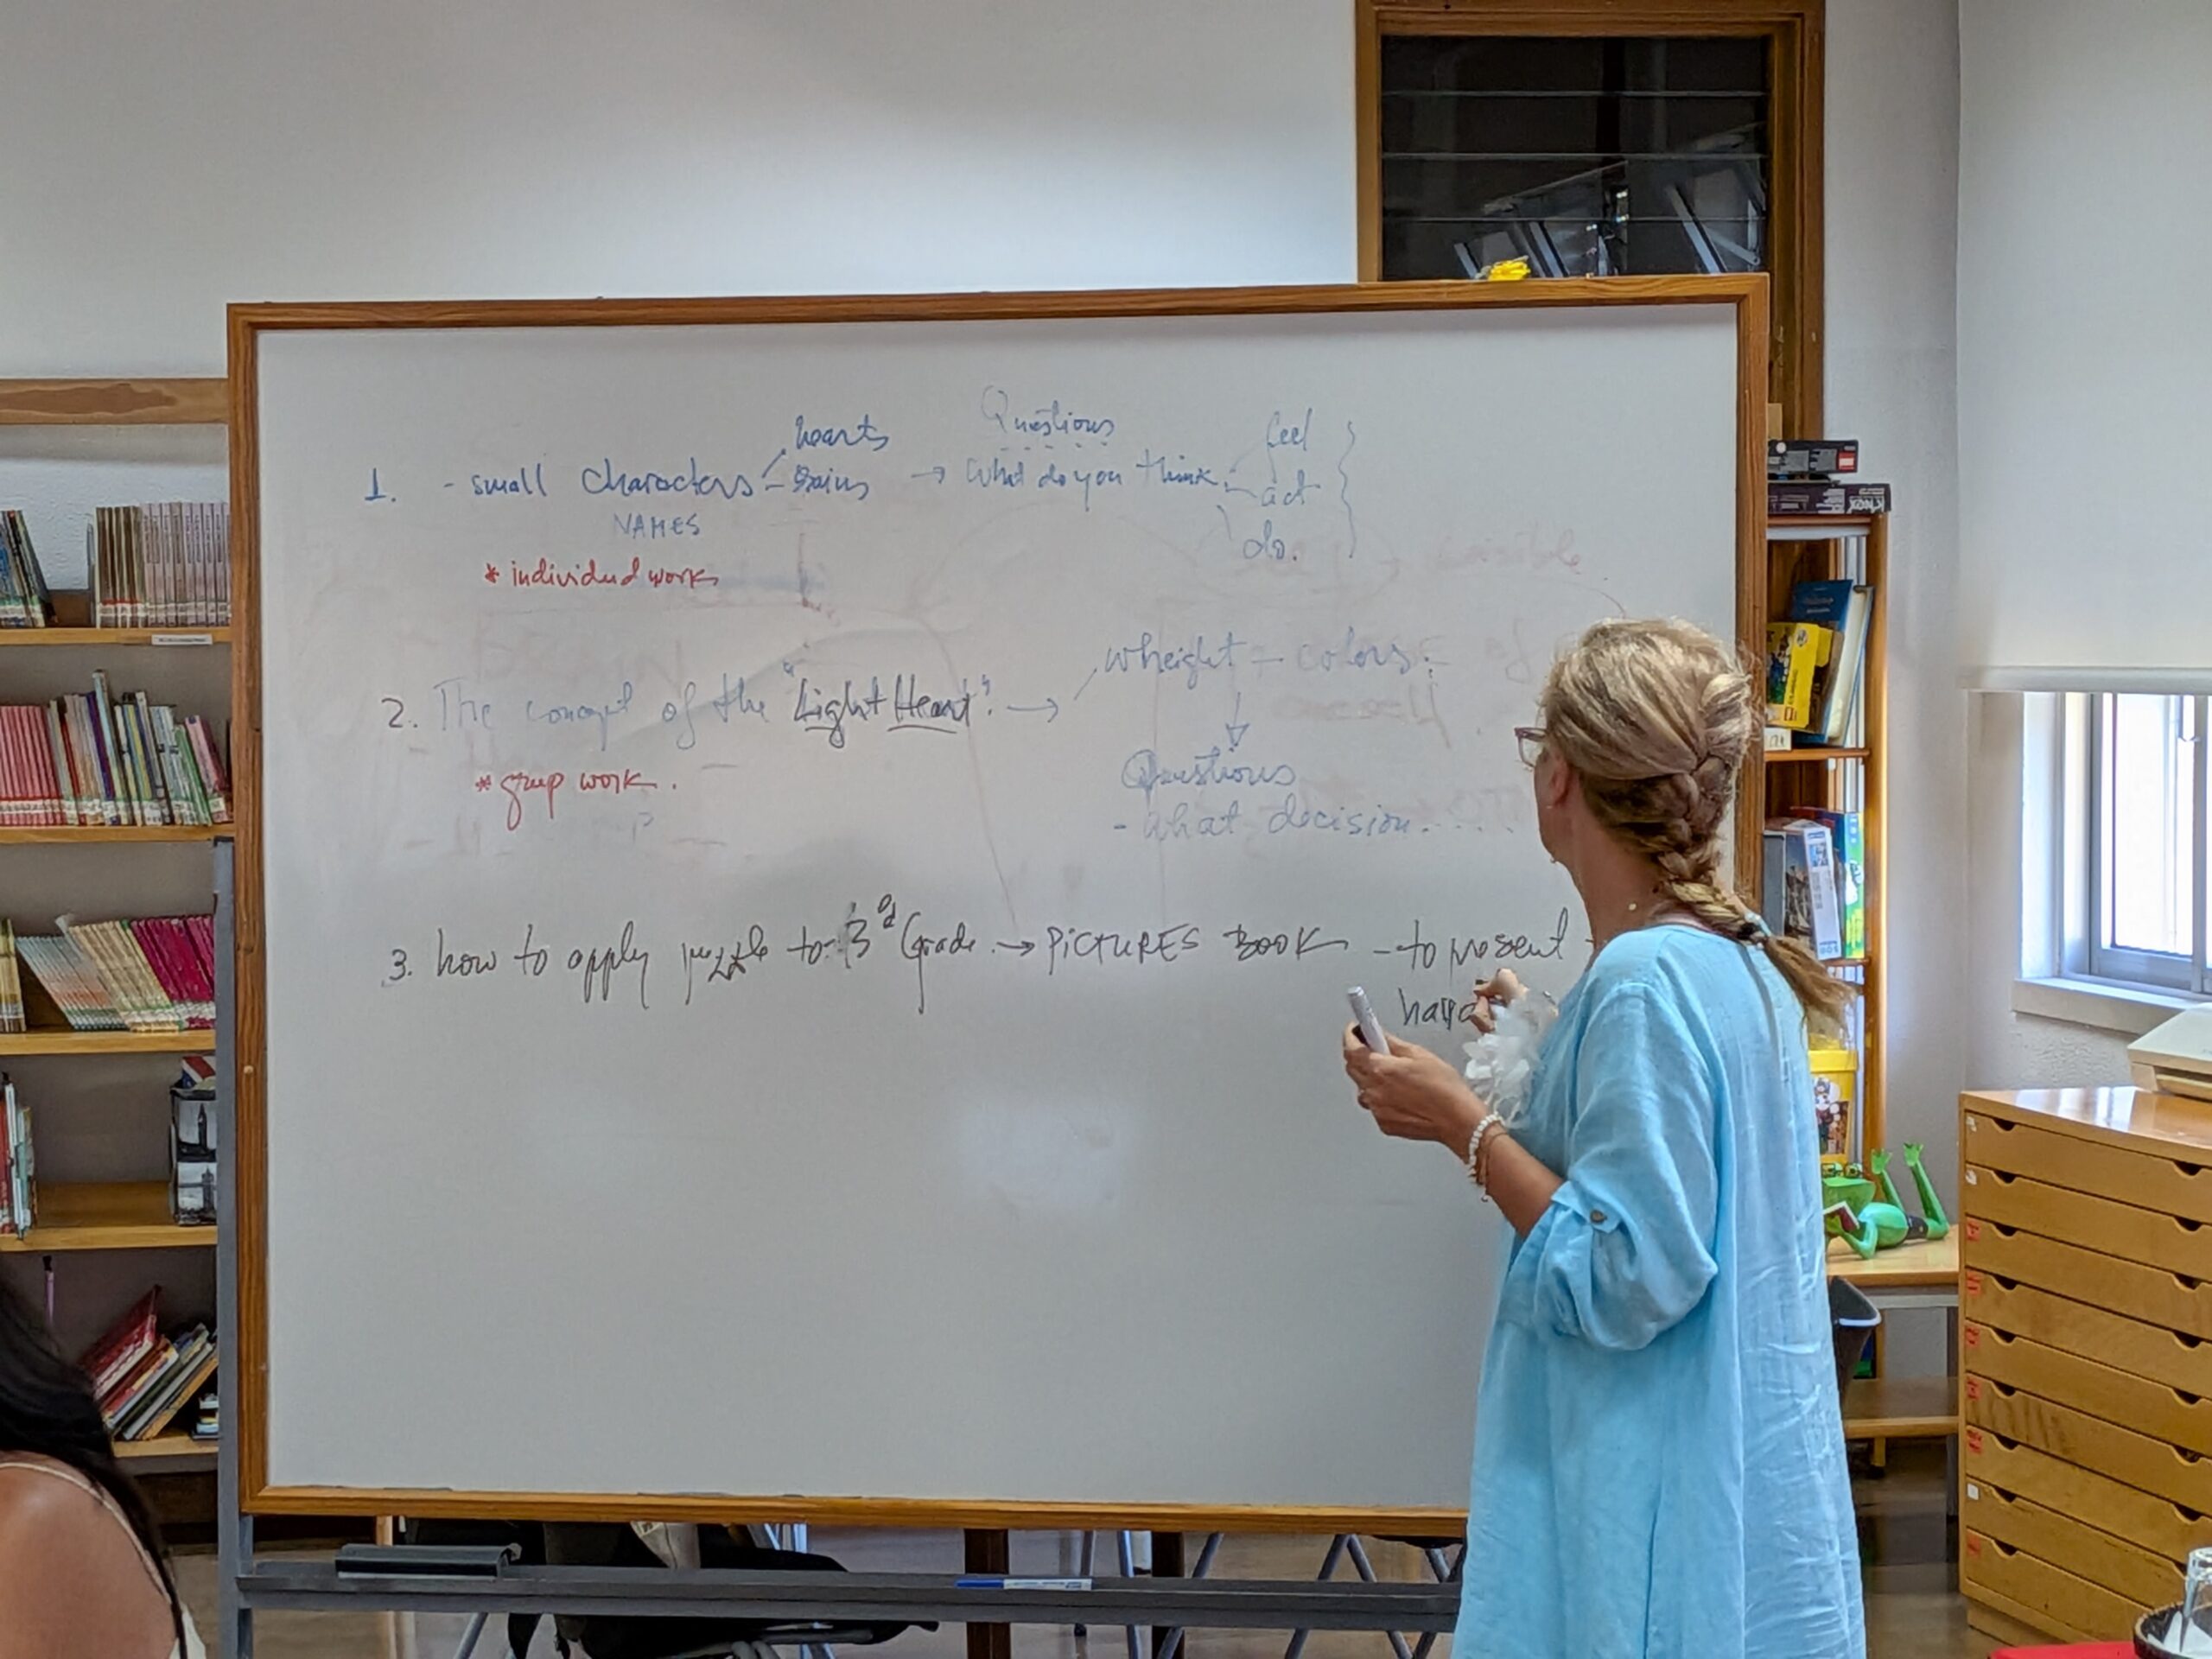 hearts
Questions
feel
1. - small characters → What do you think
act
NAMES
do.
* individual work
wheight - colors
2. The concept of the "Light Heart". →
Questions
* grup work.
- what decision....
3. how to apply puzzle to 3rd Grade → PICTURES BOOK - to present